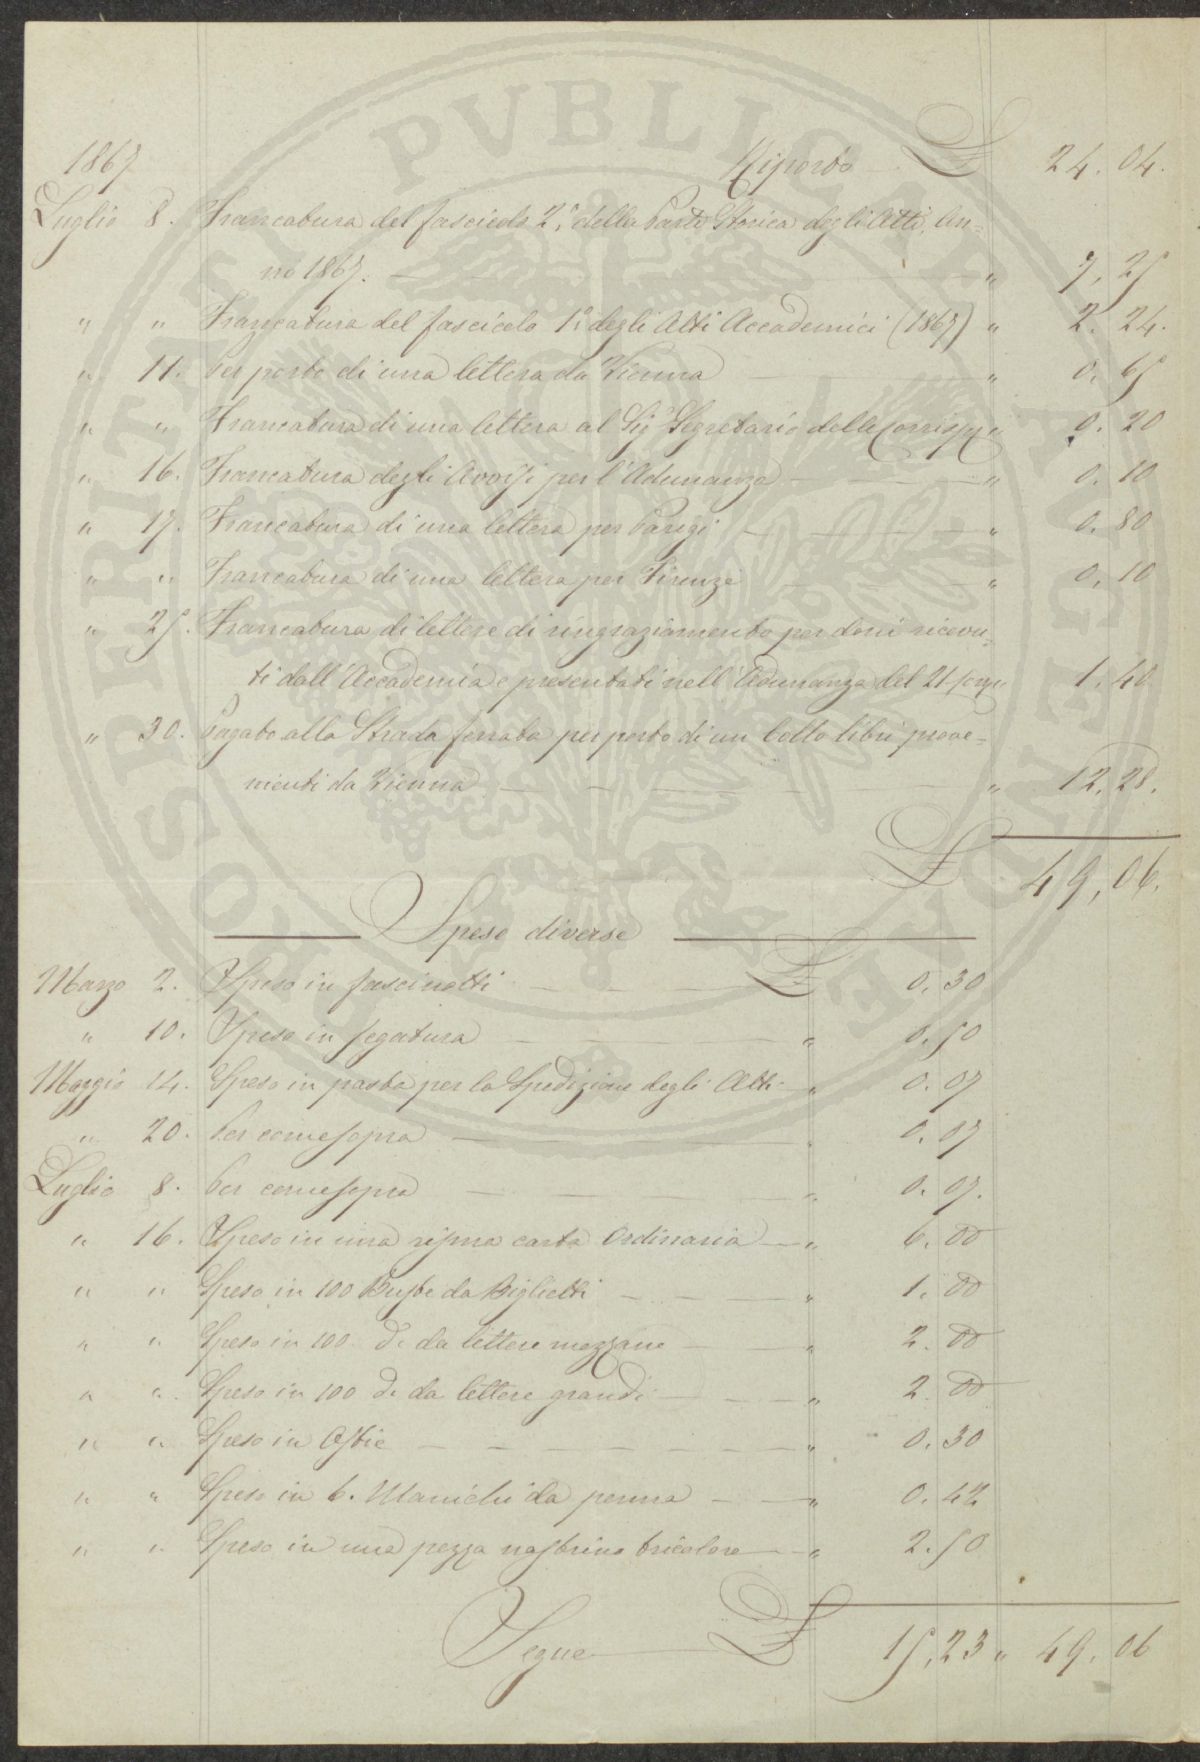 1867
Riporto £ 24.04.
Luglio 8. Francatura del fascicolo 2.° della Parte Storica degli Atti, An=
no 1867. — " 7,25
" " Francatura del fascicolo 1.° degli Atti Accademici (1867) " 2.24.
" 11. Per porto di una lettera da Vienna — " 0.65
" " Francatura di una lettera al Sig.r Segretario delle Corrisp.ze 0.20
" 16. Francatura degli Avvisi per l'Adunanza — " 0.10
" 17. Francatura di una lettera per Parigi — " 0.80
" " Francatura di una lettera per Firenze — " 0.10
" 25. Francatura di lettere di ringraziamento per doni ricevu=
ti dall'Accademia e presentati nell'Adunanza del 21 1.40
" 30. Pagato alla Strada ferrata per porto di un collo libri prove=
nienti da Vienna — " 12.28.
£ 49,06.
Spese diverse
Marzo 2. Spesa in fascinotti — £ 0.30
" 10. Spesa in segatura — " 0.50
Maggio 14. Spesa in pasta per la Spedizione degli Atti " 0.07
" 20. Per come sopra — " 0.07
Luglio 8. Per come sopra — " 0.07.
" 16. Spesa in una risma carta Ordinaria — " 6.00
" " Spesa in 100 Buste da Biglietti — " 1.00
" " Spesa in 100 d.e da lettere mezzane — " 2.00
" " Spesa in 100 d.e da lettere grandi — " 2.00
" " Spesa in Ostie — " 0.30
" " Spesa in 6. Manichi da penna — " 0.42
" " Spesa in una pezza nastrino tricolore — " 2.50
Segue £ 15,23 " 49.06
PROSPERITATIS PVBLICAE AVGVMENTO